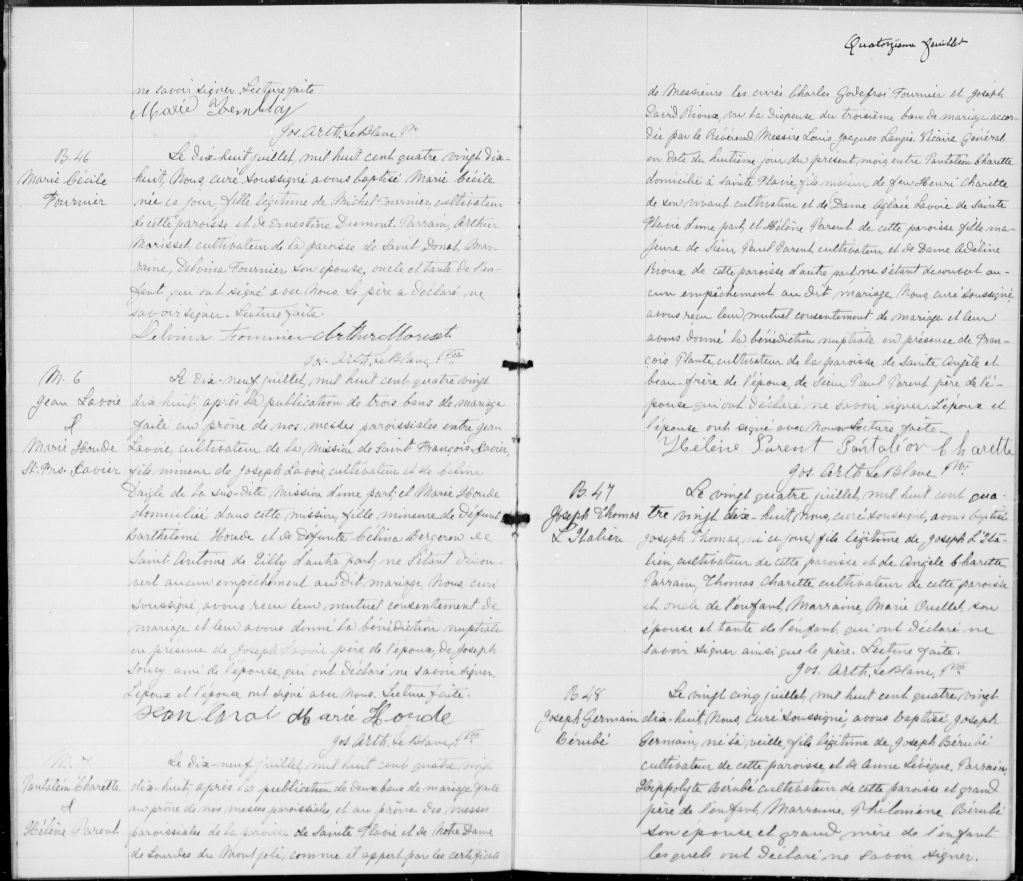 ne savoir signer. Lecture faite
Marie Tremblay
Jos. Arth. LeBlanc, Ptre
B. 46
Marie Cécile
Fournier
Le dix-huit juillet, mil huit cent quatre vingt dix-
huit, Nous, curé soussigné avons baptisé Marie Cécile
née ce jour, fille légitime de Michel Fournier, cultivateur
de cette paroisse et de Ernestine Dumont. Parrain, Arthur
Morisset, cultivateur de la paroisse de Saint Donat, Mar-
raine, Delvina Fournier son épouse, oncle et tante de l'en-
fant, qui ont signé avec Nous. Le père a déclaré ne
savoir signer. Lecture faite.
Delvina Fournier Arthur Morisset
Jos. Arth. LeBlanc, Ptre
M. 6
Jean Lavoie
&
Marie Houde
St. Frs. Xavier
Le dix-neuf juillet, mil huit cent quatre vingt
dix huit, après la publication de trois bans de mariage
faite au prône de nos messes paroissiales entre Jean
Lavoie, cultivateur de la Mission de Saint François-Xavier,
fils mineur de Joseph Lavoie, cultivateur et de Célina
Daigle de la sus-dite Mission d'une part; et Marie Houde
domiciliée dans cette mission, fille mineure de défunt
Barthélemi Houde et de défunte Célina Bergeron de
Saint Antoine de Tilly d'autre part; ne s'étant décou-
vert aucun empêchement au dit mariage, Nous, curé
soussigné, avons reçu leur mutuel consentement de
mariage et leur avons donné la bénédiction nuptiale
en présence de Joseph Lavoie père de l'époux, de Joseph
Soucy ami de l'épouse, qui ont déclaré ne savoir signer.
L'époux et l'épouse ont signé avec Nous. Lecture faite.
Marie Houde
Jos. Arth. LeBlanc, Ptre
M. 7
Pantaléon Charette
&
Hélène Parent
Le dix-neuf juillet, mil huit cent quatre vingt
dix-huit, après la publication de deux bans de mariage faite
au prône de nos messes paroissiales, et au prône des messes
paroissiales de la paroisse de Sainte Flavie et de Notre Dame
de Lourdes du Mont joli, comme il appert par les certificats
Quatorzième feuillet
de Messieurs les curés Charles Godefroi Fournier et Joseph
David Rioux, vu la dispense du troisième ban de mariage accor-
dée par le Révérend Messire Louis Jacques Langis, Vicaire Général
en date du huitième jour du présent mois, entre Pantaléon Charette
domicilié à Sainte Flavie, fils majeur de feu Henri Charette
de son vivant cultivateur et de Dame Aglaée Lavoie de Sainte
Flavie d'une part; et Hélène Parent de cette paroisse fille ma-
jeure de Sieur Paul Parent, cultivateur et de Dame Adeline
Rioux de cette paroisse d'autre part, ne s'étant découvert au-
cun empêchement au dit mariage, Nous, curé soussigné,
avons reçu leur mutuel consentement de mariage et leur
avons donné la bénédiction nuptiale en présence de Fran-
çois Plante cultivateur de la paroisse de Sainte Angèle et
beau-frère de l'épouse, de Sieur Paul Parent père de l'é-
pouse qui ont déclaré ne savoir signer. L'époux et
l'épouse ont signé avec Nous. Lecture faite.
Hélène Parent Pantaléon Charette
Jos. Arth. LeBlanc, Ptre
B. 47
Joseph Thomas
L'Italien
Le vingt quatre juillet, mil huit cent qua-
tre vingt dix-huit, Nous, curé soussigné, avons baptisé
Joseph Thomas, né ce jour, fils légitime de Joseph L'Ita-
lien, cultivateur de cette paroisse et de Angèle Charette
Parrain, Thomas Charette, cultivateur de cette paroisse
et oncle de l'enfant, Marraine, Marie Ouellet, son
épouse et tante de l'enfant, qui ont déclaré ne
savoir signer ainsi que le père. Lecture faite.
Jos. Arth. LeBlanc, Ptre
B. 48
Joseph Germain
Bérubé
Le vingt cinq juillet, mil huit cent quatre vingt
dix-huit, Nous, curé soussigné, avons baptisé Joseph
Germain, né la veille, fils légitime de Joseph Bérubé
cultivateur de cette paroisse et de Anne Lévèque. Parrain,
Hippolyte Bérubé cultivateur de cette paroisse et grand
père de l'enfant, Marraine, Philomène Bérubé
son épouse et grand mère de l'enfant
lesquels ont déclaré ne savoir signer.